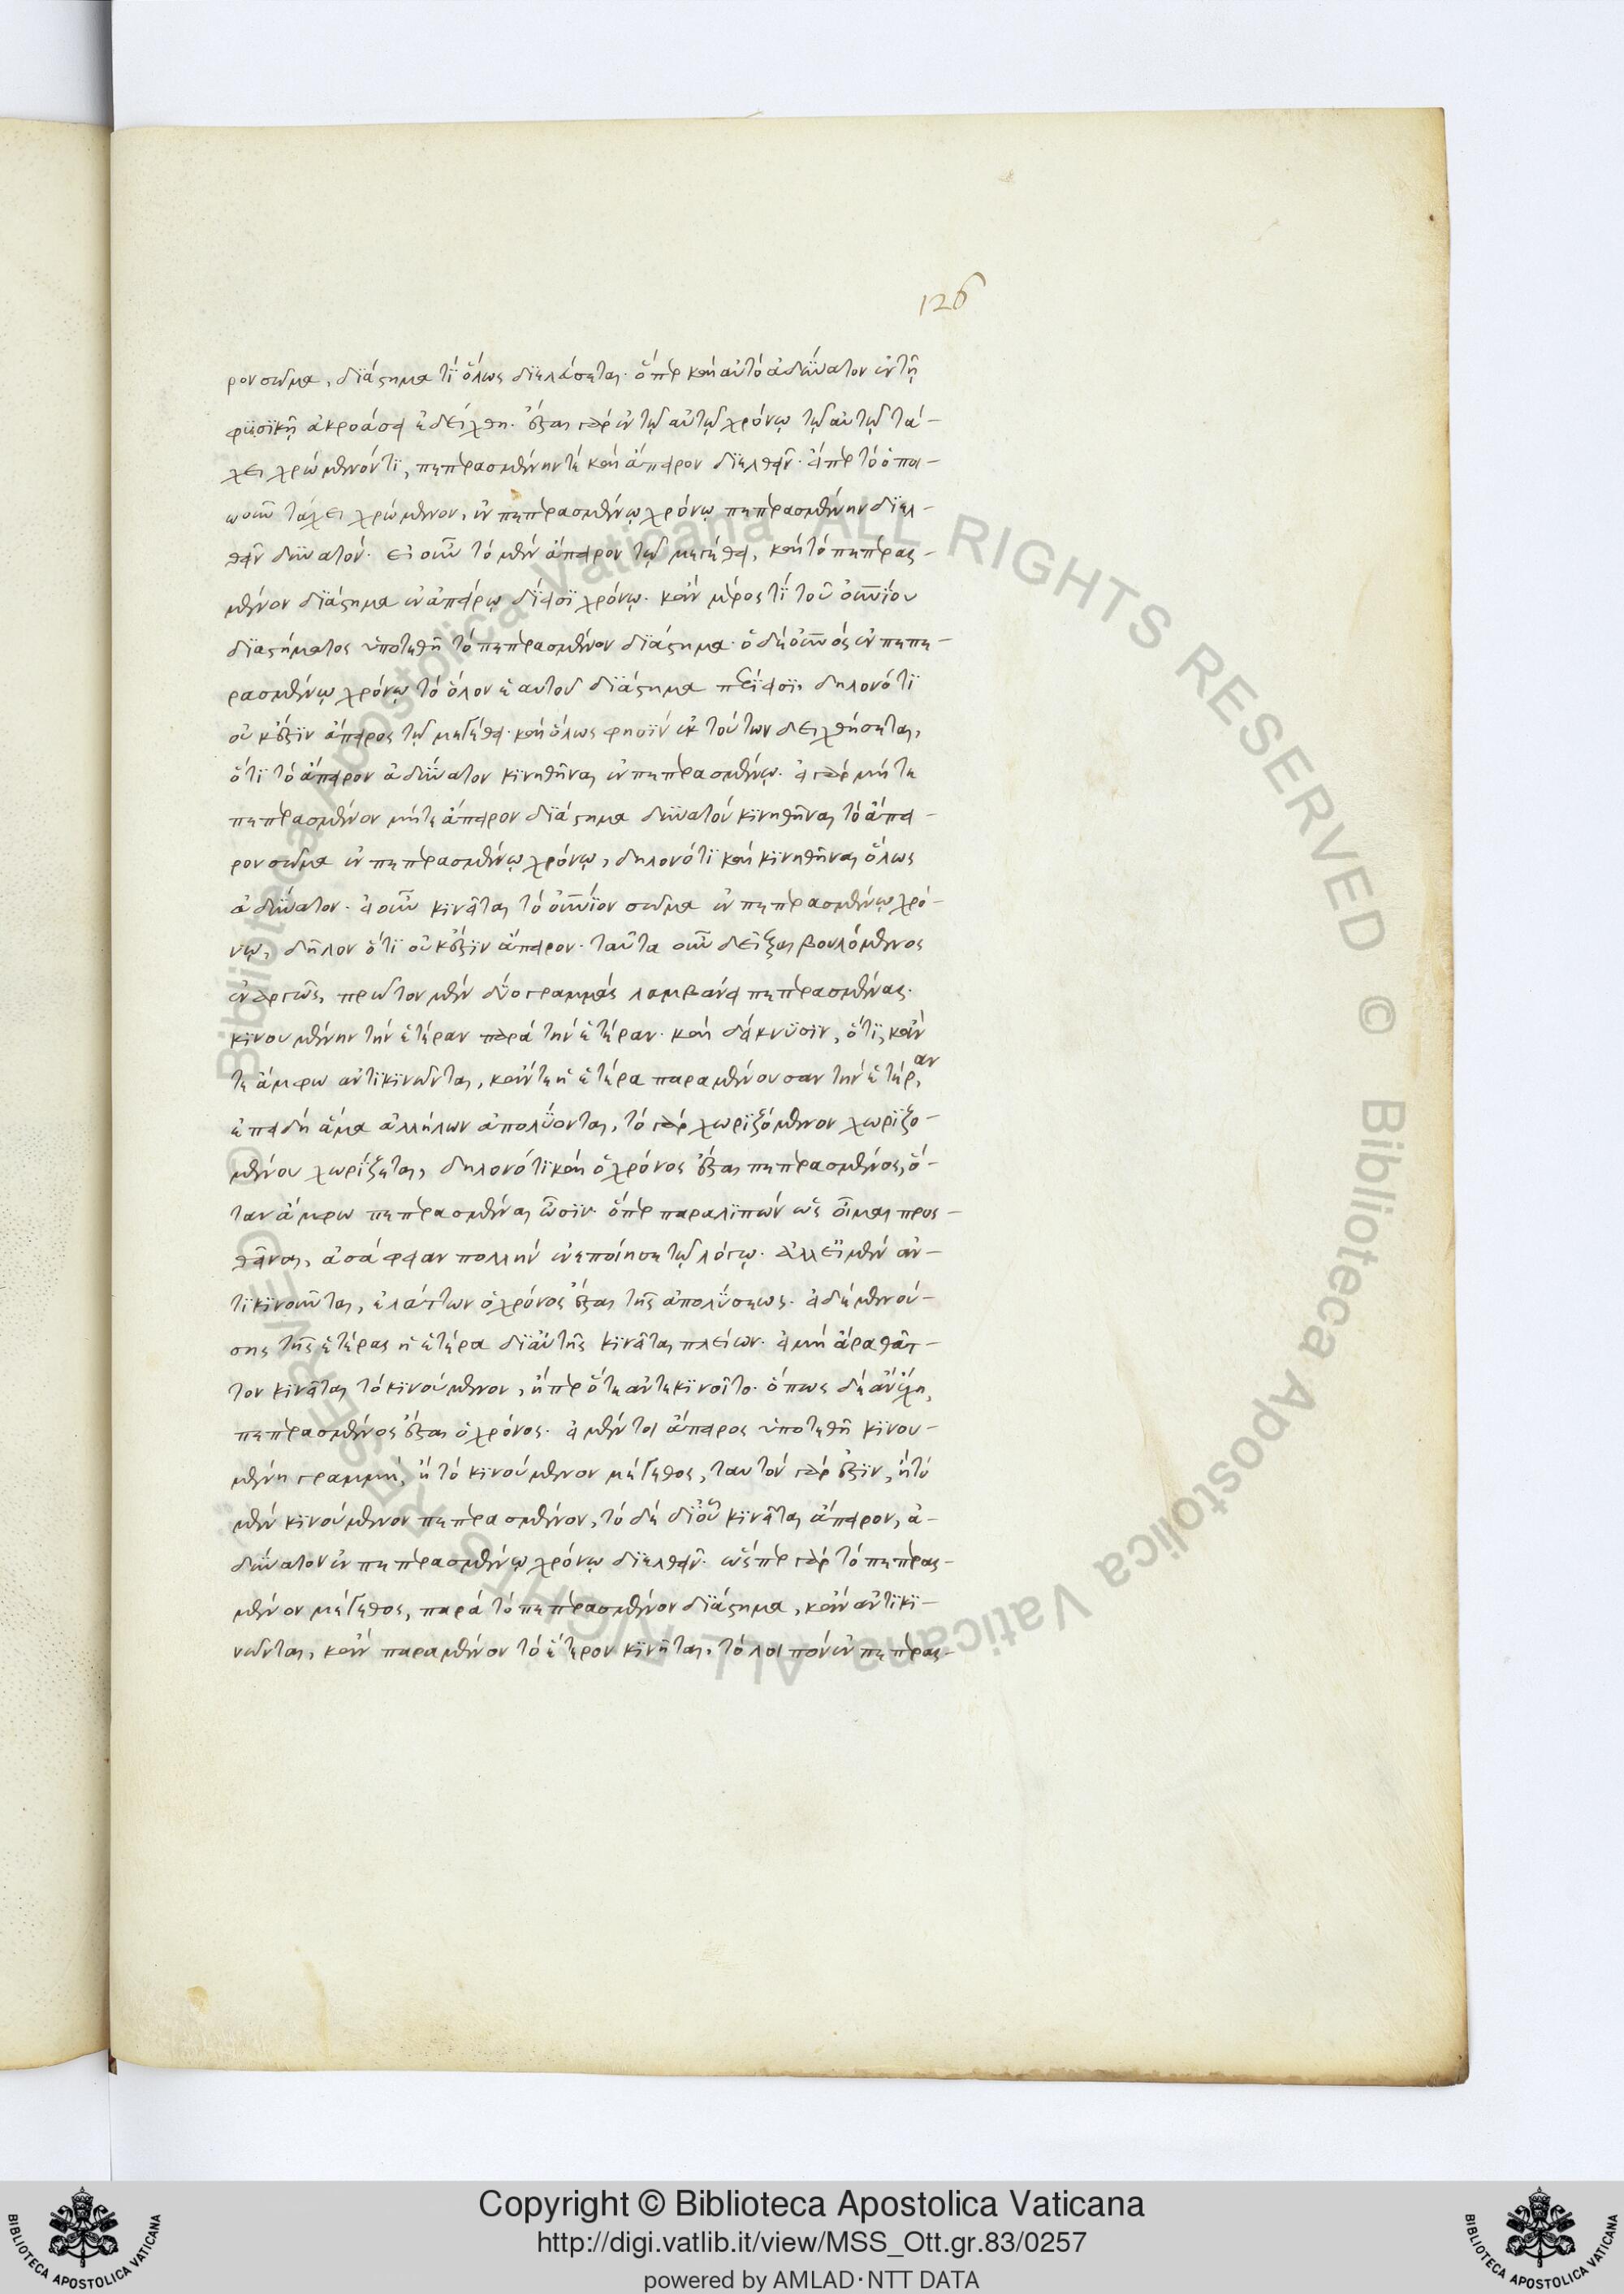 126
ρον σῶμα, διάστημά τι ὅλως διελάσεται. ὅπερ καὶ αὐτὸ ἀδύνατον ἐν τῇ
φυσικῇ ἀκροάσει ἐδείχθη. ἔσται γὰρ ἐν τῷ αὐτῷ χρόνῳ τῷ αὐτῷ τά-
χει χρώμενόν τι, πεπερασμένην τὲ καὶ ἄπειρον διελθεῖν. εἴπερ τὸ ὁποι-
ωοῦν τάχει χρώμενον, ἐν πεπερασμένῳ χρόνῳ πεπερασμένην διελ-
θεῖν δυνατόν. εἰ οὖν τὸ μὲν ἄπειρον τῷ μεγέθει, καὶ τὸ πεπερας-
μένον διάστημα ἐν ἀπείρῳ δίεισι χρόνῳ. κἂν μέρος τί τοῦ οὐνίου
διαστήματος ὑποτεθῇ τὸ πεπερασμένον διάστημα. ὁ δὲ οὐνος ἐν πεπε-
ρασμένῳ χρόνῳ τὸ ὅλον ἑαυτοῦ διάστημα περίεισι, δηλονότι
οὐκ ἔστιν ἄπειρος τῷ μεγέθει. καὶ ὅλως φησὶν ἐκ τούτων δειχθήσεται,
ὅτι τὸ ἄπειρον ἀδύνατον κινηθῆναι ἐν πεπερασμένῳ. εἰ γὰρ μήτε
πεπερασμένον μήτε ἄπειρον διάστημα δυνατὸν κινηθῆναι τὸ ἄπει-
ρον σῶμα ἐν πεπερασμένῳ χρόνῳ, δηλονότι καὶ κινηθῆναι ὅλως
ἀδύνατον. εἰ οὖν κινεῖται τὸ οὐνιον σῶμα ἐν πεπερασμένῳ χρό-
νῳ, δῆλον ὅτι οὐκ ἔστιν ἄπειρον. ταῦτα οὖν δεῖξαι βουλόμενος
ἐναργῶς, πρῶτον μὲν δύο γραμμὰς λαμβάνει πεπερασμένας.
κινουμένην τὴν ἑτέραν παρὰ τὴν ἑτέραν. καὶ δείκνυσιν, ὅτι, κἄν
τε ἄμφω ἀντικινῶνται, κἄν τε ἡ ἑτέρα παραμένουσαν τὴν ἑτέραν
ἐπειδὴ ἅμα ἀλλήλων ἀπολύονται, τὸ γὰρ χωριζόμενον χωριζο-
μένου χωρίζεται, δηλονότι καὶ ὁ χρόνος ἔσται πεπερασμένος, ὅ-
ταν ἄμφω πεπερασμέναι ὦσιν. ὅπερ παραλιπὼν ὡς οἶμαι προς-
θεῖναι, ἀσάφειαν πολλὴν ἐνεποίησε τῷ λόγῳ. ἀλλ' εἰ μὲν ἀν-
τικινοῦνται, ἐλάττων ὁ χρόνος ἔσται τῆς ἀπολύσεως. εἰ δὲ μενού-
σης τῆς ἑτέρας ἡ ἑτέρα δι αὐτῆς κινεῖται πλείων. εἰ μὴ ἄρα θᾶτ-
τον κινεῖται τὸ κινούμενον, ἤπερ ὅτε ἀντεκινοῖτο. ὅπως δὲ ἂν ἔχῃ,
πεπερασμένος ἔσται ὁ χρόνος. εἰ μέντοι ἄπειρος ὑποτεθῇ κινου-
μένη γραμμή, ἢ τὸ κινούμενον μέγεθος, ταυτὸν γὰρ ἔστιν, ἢ τὸ
μὲν κινούμενον πεπερασμένον, τὸ δὲ δι οὗ κινεῖται ἄπειρον, ἀ-
δύνατον ἐν πεπερασμένῳ χρόνῳ διελθεῖν. ὥσπερ γὰρ τὸ πεπερας-
μένον μέγεθος, παρὰ τὸ πεπερασμένον διάστημα, κἂν ἀντικι-
νῶνται, κἂν παραμένον τὸ ἕτερον κινῆται, τὸ λοιπὸν ἐν πεπερας-
Copyright © Biblioteca Apostolica Vaticana
http://digi.vatlib.it/view/MSS_Ott.gr.83/0257
powered by AMLAD·NTT DATA